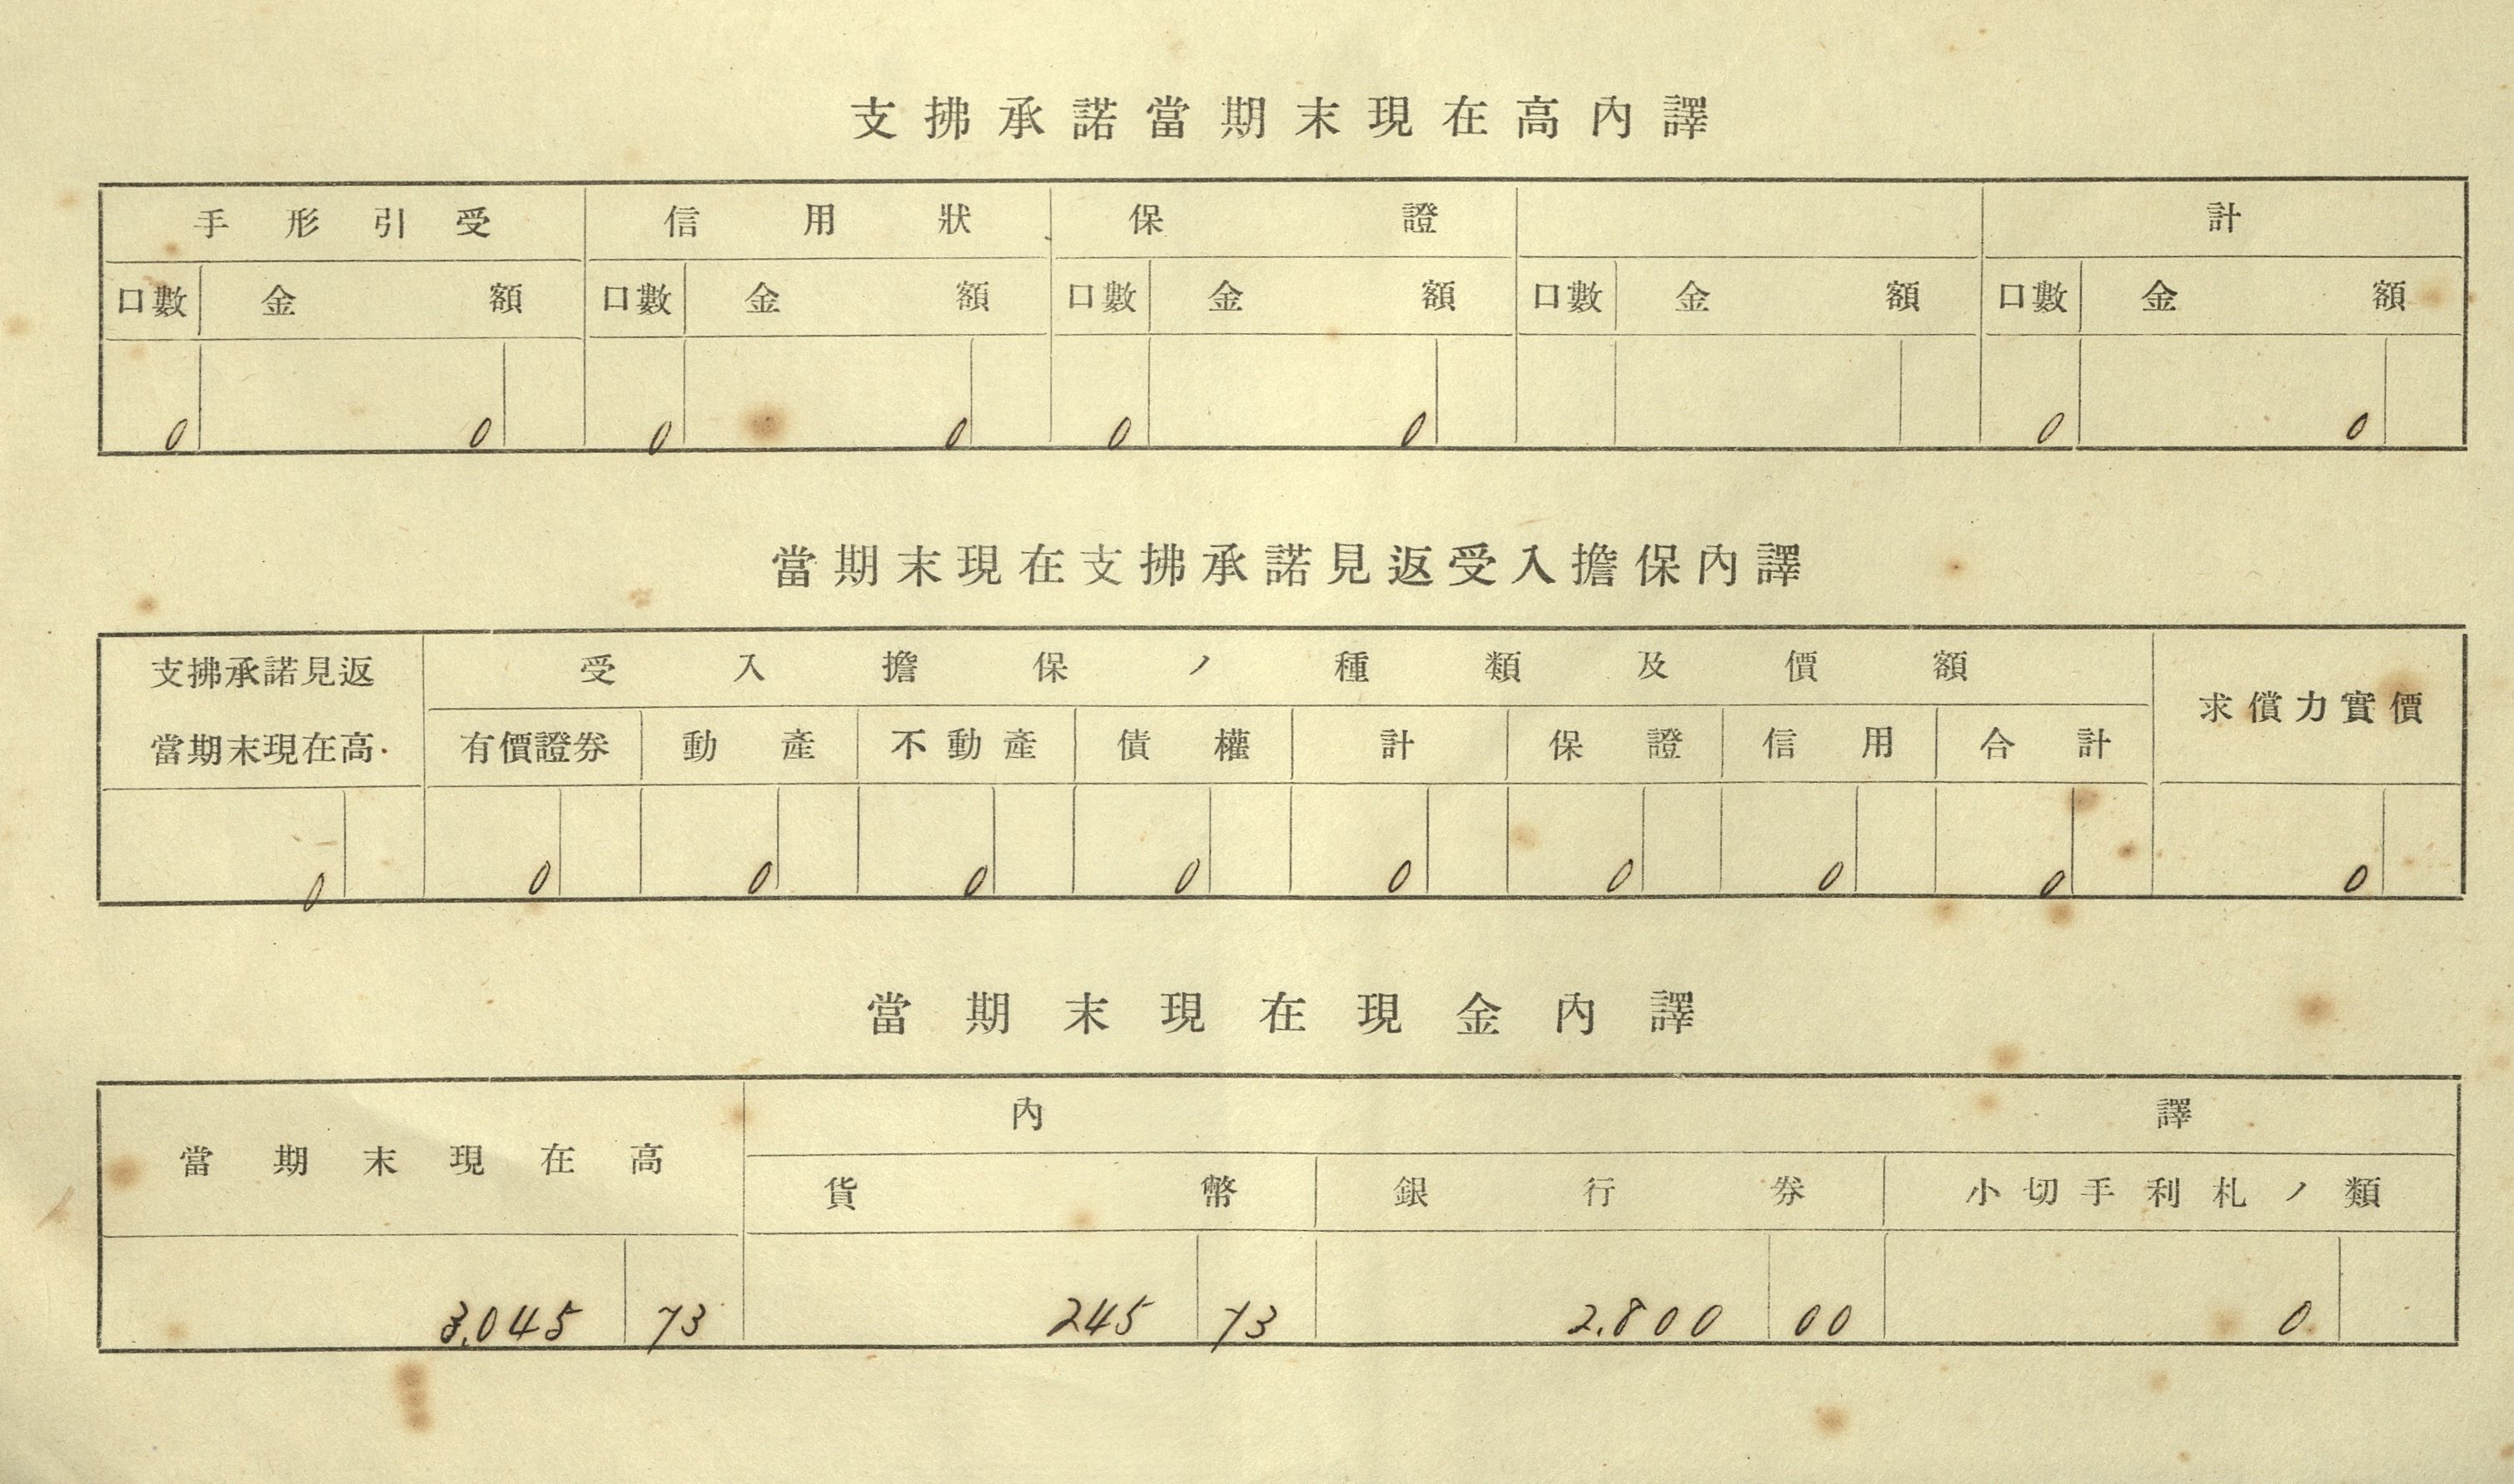 支拂承諾當期末現在高內譯
手形引受 信用狀 保證 計
口數 金額 口數 金額 口數 金額 口數 金額 口數 金額
0 0 0 0 0 0 0 0
當期末現在支拂承諾見返受入擔保內譯
支拂承諾見返 受入擔保ノ種類及價額 求償力實價
當期末現在高 有價證券 動產 不動產 債權 計 保證 信用 合計
0 0 0 0 0 0 0 0 0 0
當期末現在現金內譯
當期末現在高 內譯
貨幣 銀行券 小切手利札ノ類
3,045 73 245 73 2,800 00 0